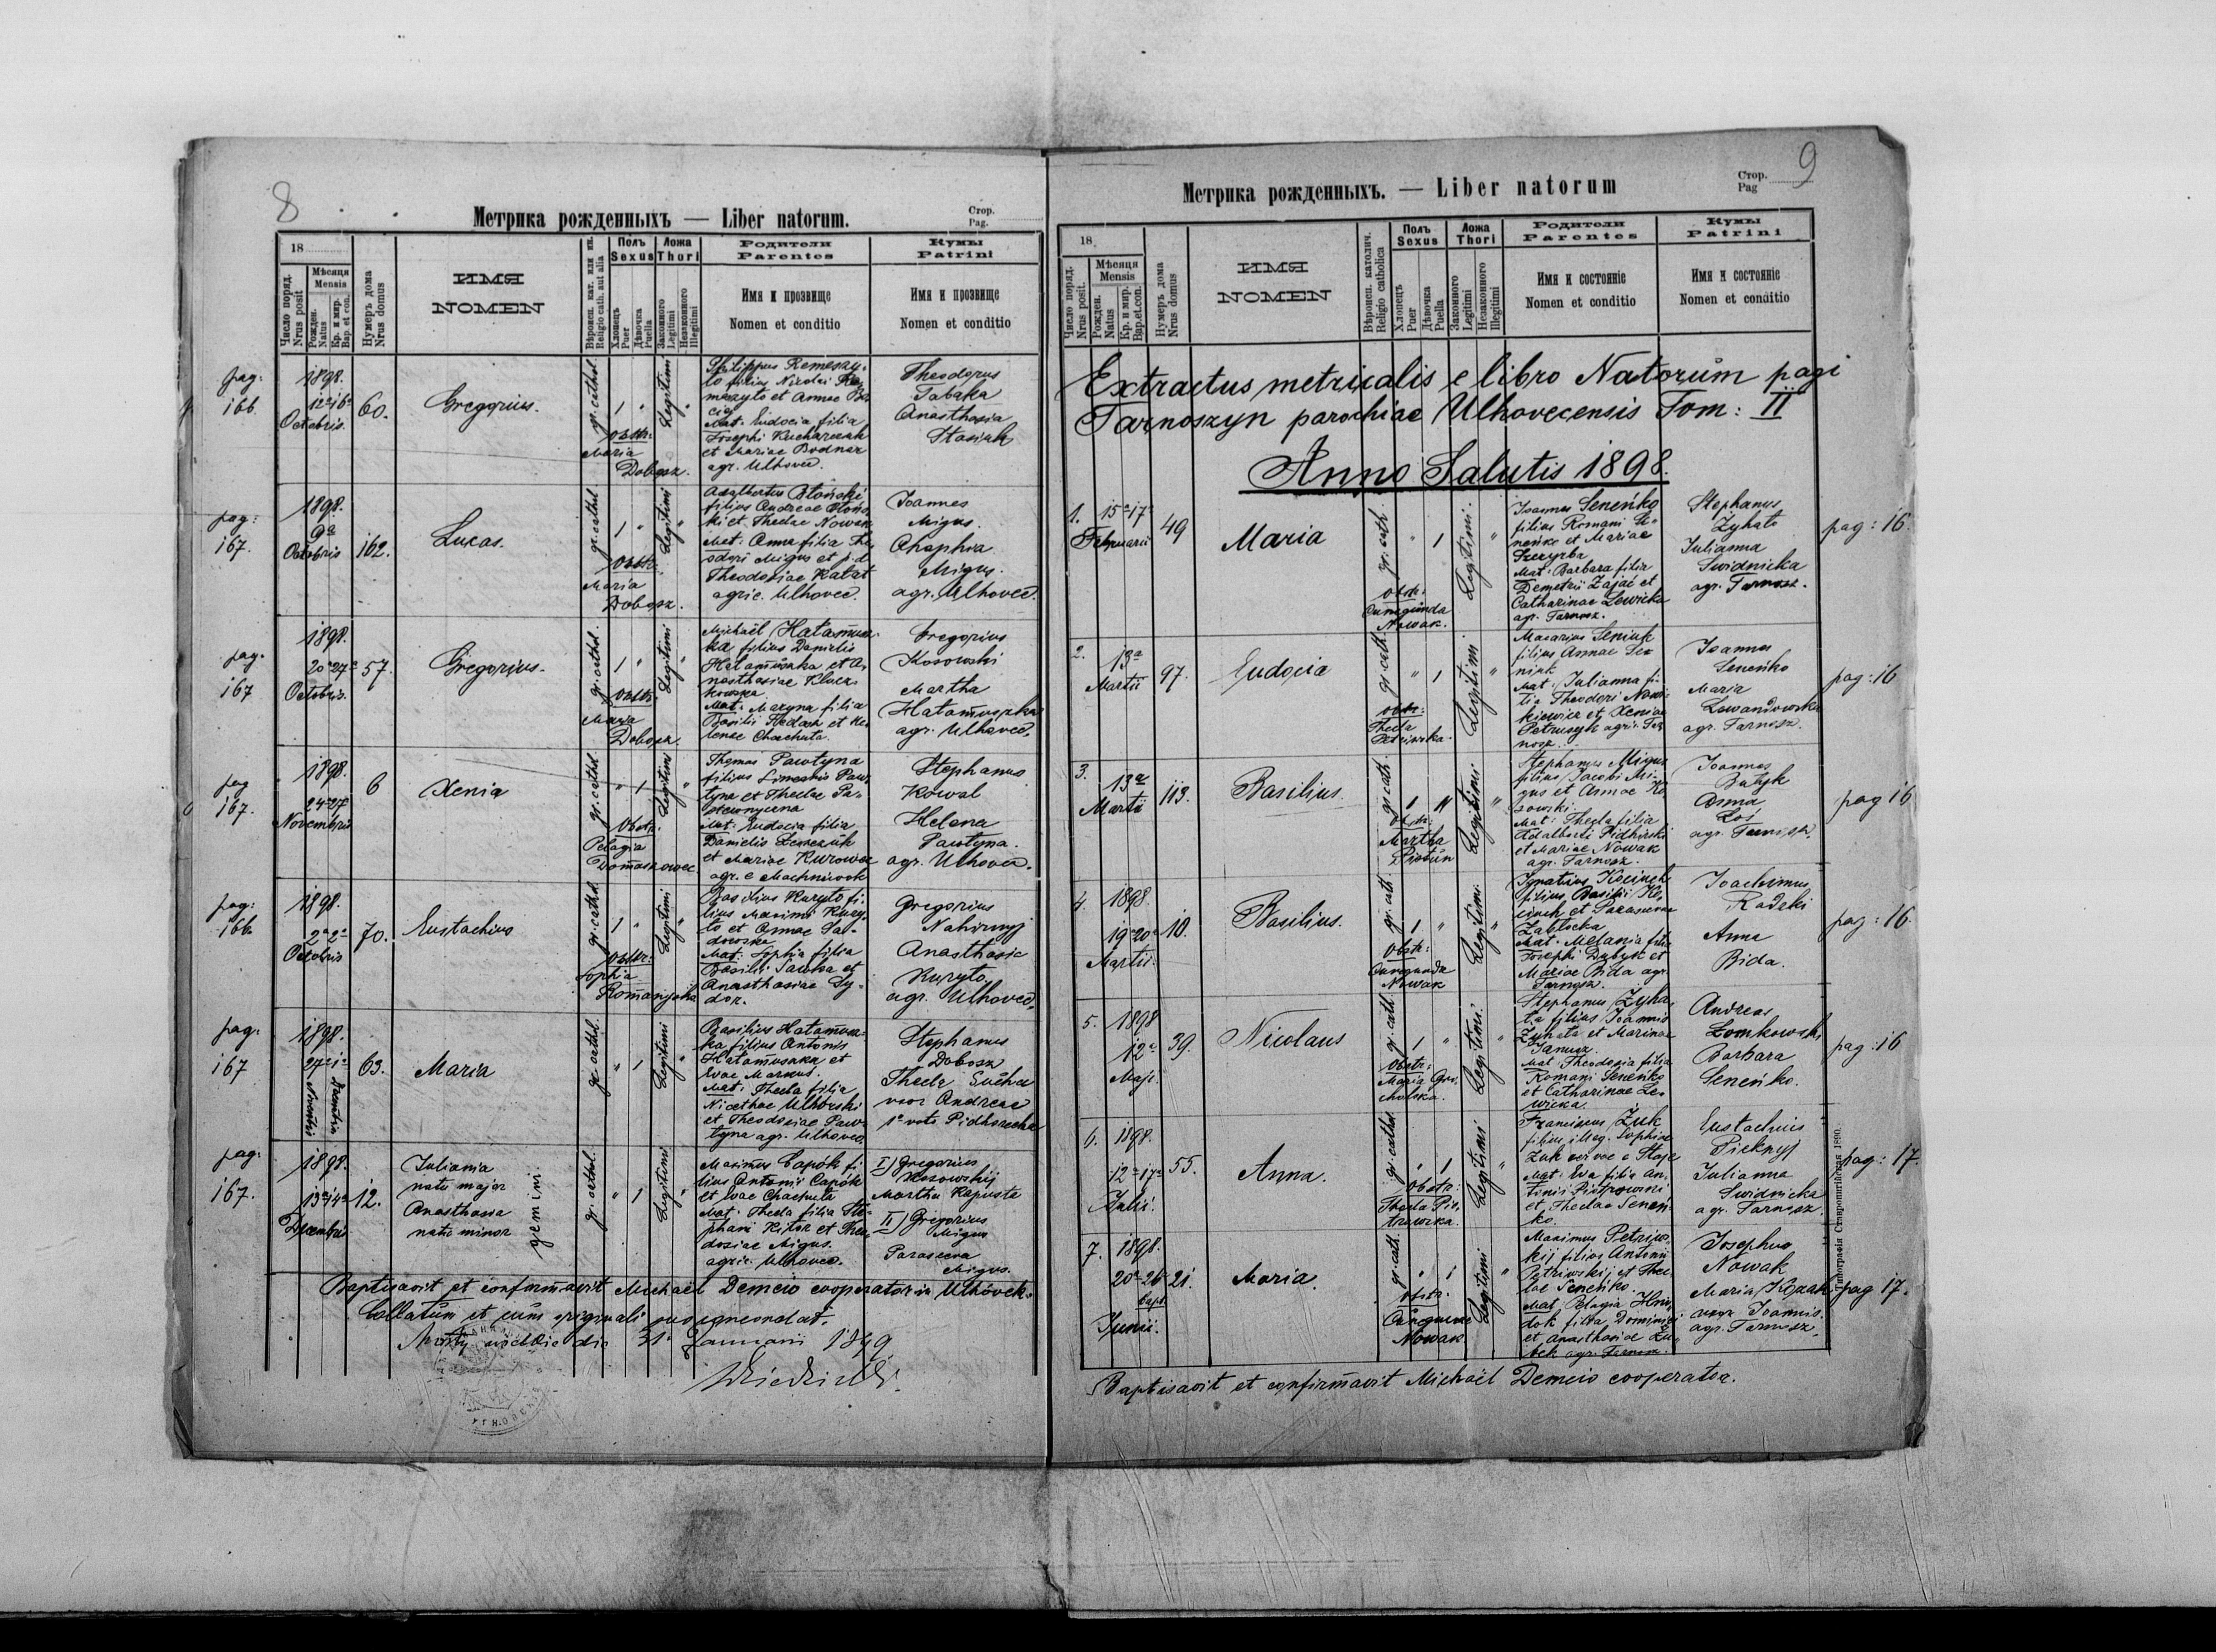 8
Метрика рожденныхъ — Liber natorum.
Стор.
Pag.
18
Число поряд.
Nrus posit
Мѣсяця
Mensis
Рожден.
Natus
Кр. и мир.
Bap. et con.
Нумеръ дома
Nrus domus
ИМЯ
NOMEN
Вѣроисп. кат. или ин.
Religio cath. aut alia
Полъ
Sexus
Хлопець
Puer
Дѣвочка
Puella
Ложа
Thori
Законного
Legitimi
Незаконного
Illegitimi
Родители
Parentes
Имя и прозвище
Nomen et conditio
Кумы
Patrini
Имя и прозвище
Nomen et conditio
pag:
166
1898.
12a 16a
Octobris
60.
Gregorius.
gr. cathol.
1 "
Legitimi
Obstr:
Maria
Dobosz.
Philippus Remeszy-
lo filius Nicolai Re-
meszylo et Annae
Mat: Eudocia filia
Josephi Kucharczak
et Mariae Bodnar
agr. Ulhovec.
Theodorus
Tabaka
Anasthasia
Stasiuk
pag:
167.
1898.
9a
Octobris
162.
Lucas.
gr. cathol
1 "
Legitimi
Obstr:
Maria
Dobosz.
Adalbertus Błoński
filius Andreae Błońs-
ki et Theclae Nowak
Mat: Anna filia The-
odori Migus et
Theodosiae
agric. Ulhovec.
Joannes
Migus.
Migus.
agr. Ulhovec.
pag.
167
1898.
20a 27a
Octobris.
57.
Gregorius.
gr. cathol.
1 "
Legitimi
Obstr:
Maria
Dobosz.
Michaël Hałamusz-
ka filius Danielis
Hałamuszka et A-
nasthasiae
Mat: Maryna filia
Basilii et He-
lenae Chachuta.
Gregorius
Kosowski
Martha
Hałamuszka
agr. Ulhovec.
pag
167.
1898.
24a 27
Novembris
6
Xenia
gr. cathol.
" 1
Legitimi
Obstr:
Pelagia
Domaszowec
Thomas Pawtyna
filius Simeonis Paw-
tyna et Theclae
Mat: Eudocia filia
Danielis
et Mariae Kurowec
agr. e Machnówek
Stephanus
Kowal
Helena
Pawtyna.
agr. Ulhovec.
pag:
166
1898.
2a 2a
Octobris
70.
Eustachius
gr. cathol.
1 "
Legitimi
Obstr:
Sophia
Basilius Kuryło fi-
lius Maximi Kury-
ło et Annae Sa-
dowska
Mat: Sophia filia
Basilii et
Anasthasiae Sy-
dor.
Gregorius
Nahirnyj
Anasthasia
Kuryło
agr. Ulhovec.
pag:
167
1898.
27a 1a
63.
Maria
gr. cathol.
" 1
Legitimi
Basilius Hałamusz-
ka filius Antonii
Hałamuszka et
Evae Markus.
Mat: Thecla filia
Nicethae Ulhovski
et Theodosiae Paw-
tyna agr. Ulhovec
Stephanus
Dobosz
Thecla
uxor Andreae
1o voto Pidhorecka
pag.
167.
1898.
13a 14a
Decembris
12.
Juliania
natu major
Anasthasia
natu minor
gemini.
gr. cathol.
" 1
Legitimi
Maximus Capók fi-
lius Antonii Capók
et Evae Chachuta
Mat: Thecla filia Ste-
phani et Theo-
dosiae Migus.
agric. Ulhovec.
I) Gregorius
Kosowskij
Martha Kapusta
II) Gregorius
Migus
Parasceva
Migus.
Baptisavit et confirmavit Michaël Demcio cooperator in Ulhówek.
Collatum et cum originali suo concordat.
die 31a Januarii 1899
9
Метрика рожденныхъ. — Liber natorum
Стор.
Pag
18.
Число поряд.
Nrus posit.
Мѣсяця
Mensis
Рожден.
Natus
Кр. и мир.
Bap. et con.
Нумеръ дома
Nrus domus
ИМЯ
NOMEN
Вѣроисп. католич.
Religio catholica
Полъ
Sexus
Хлопець
Puer
Дѣвочка
Puella
Ложа
Thori
Законного
Legitimi
Незаконного
Illegitimi
Родители
Parentes
Имя и состояніе
Nomen et conditio
Кумы
Patrini
Имя и состояніе
Nomen et conditio
Extractus metricalis e libro Natorum pagi
Tarnoszyn parochiae Ulhovecensis Tom: II
Anno Salutis 1898.
1.
15a 17a
Februarii
49
Maria
gr. cath.
" 1
Legitimi.
"
Obstr:
Cunegunda
Nowak.
Joannes Seneńko
filius Romani Se-
neńko et Mariae
Szczyrba
Mat: Barbara filia
Demetrii Zając et
Catharinae Lewicka
agr. Tarnosz.
Stephanus
Żyhało
Julianna
Swidnicka
agr. Tarnosz.
pag: 16.
2.
13a
Martii
97.
Eudocia
gr. cath.
" 1
Legitimi.
"
Obstr:
Thecla
Petriwska.
Macarius Seniuk
filius Annae Se-
niuk
Mat: Julianna fi-
lia Theodori
et Xeniae
Petruszyk agr. Tar-
nosz.
Joannes
Seneńko
Maria
Lewandowska
agr. Tarnosz.
pag: 16
3.
13a
Martii
113.
Basilius.
gr. cath.
1 "
Legitimi.
"
Obstr:
Martha
Piotun
Stephanus Migus
filius Jacobi Mi-
gus et Annae Ko-
sowski.
Mat: Thecla filia
Adalberti Pidhirski
et Mariae Nowak
agr. Tarnosz.
Joannes
Batyk
Anna
Łoś
agr. Tarnosz.
pag 16
4
1898.
19a 20a
Martii.
10.
Basilius.
gr. cath.
1 "
Legitimi.
"
Obstr:
Cunegunda
Nowak
Ignatius Kociuch
filius Basilii Ko-
ciuch et Parasceva
Zabłocka
Mat: Melania filia
Josephi Dubyk et
Mariae Bida agr.
Tarnosz.
Joachimus
Radzki
Anna
Bida.
pag: 16.
5.
1898
12a
Maji.
39.
Nicolaus
gr. cath.
1 "
Legitimi.
"
Obstr:
Maria
Stephanus Zyha-
ła filius Joannis
Zyhała et Marinae
Janusz.
Mat: Theodosia filia
Romani Seneńko
et Catharinae Le-
wicka.
Andreas
Łomkowski
Barbara
Seneńko.
pag: 16
6.
1898.
12a 17a
Julii.
55.
Anna.
gr. cathol.
" 1
Legitimi
"
Obstr:
Thecla Pio-
trowska.
Franciscus Żuk
filius illeg. Sophiae
Żuk
Mat: Eva filia An-
tonii Piotrowski
et Theclae Seneń-
ko.
Eustachius
Pieknyj
Julianna
Swidnicka
agr. Tarnosz.
pag: 17.
7.
1898.
20a 26
bapt.
Junii.
21.
Maria.
gr. cath.
" 1
Legitimi
"
Obstr:
Nowak
Maximus Petriws-
kij filius Antonii
Petriwskij et Thec-
lae Seneńko.
Mat: Pelagia
filia Dominici
et Anasthasiae
agr. Tarnosz.
Josephus
Nowak
Maria Kozak
uxor Joannis.
agr. Tarnosz.
pag 17.
Типографія Ставропигійская 1890.
Baptisavit et confirmavit Michaël Demcio cooperator.